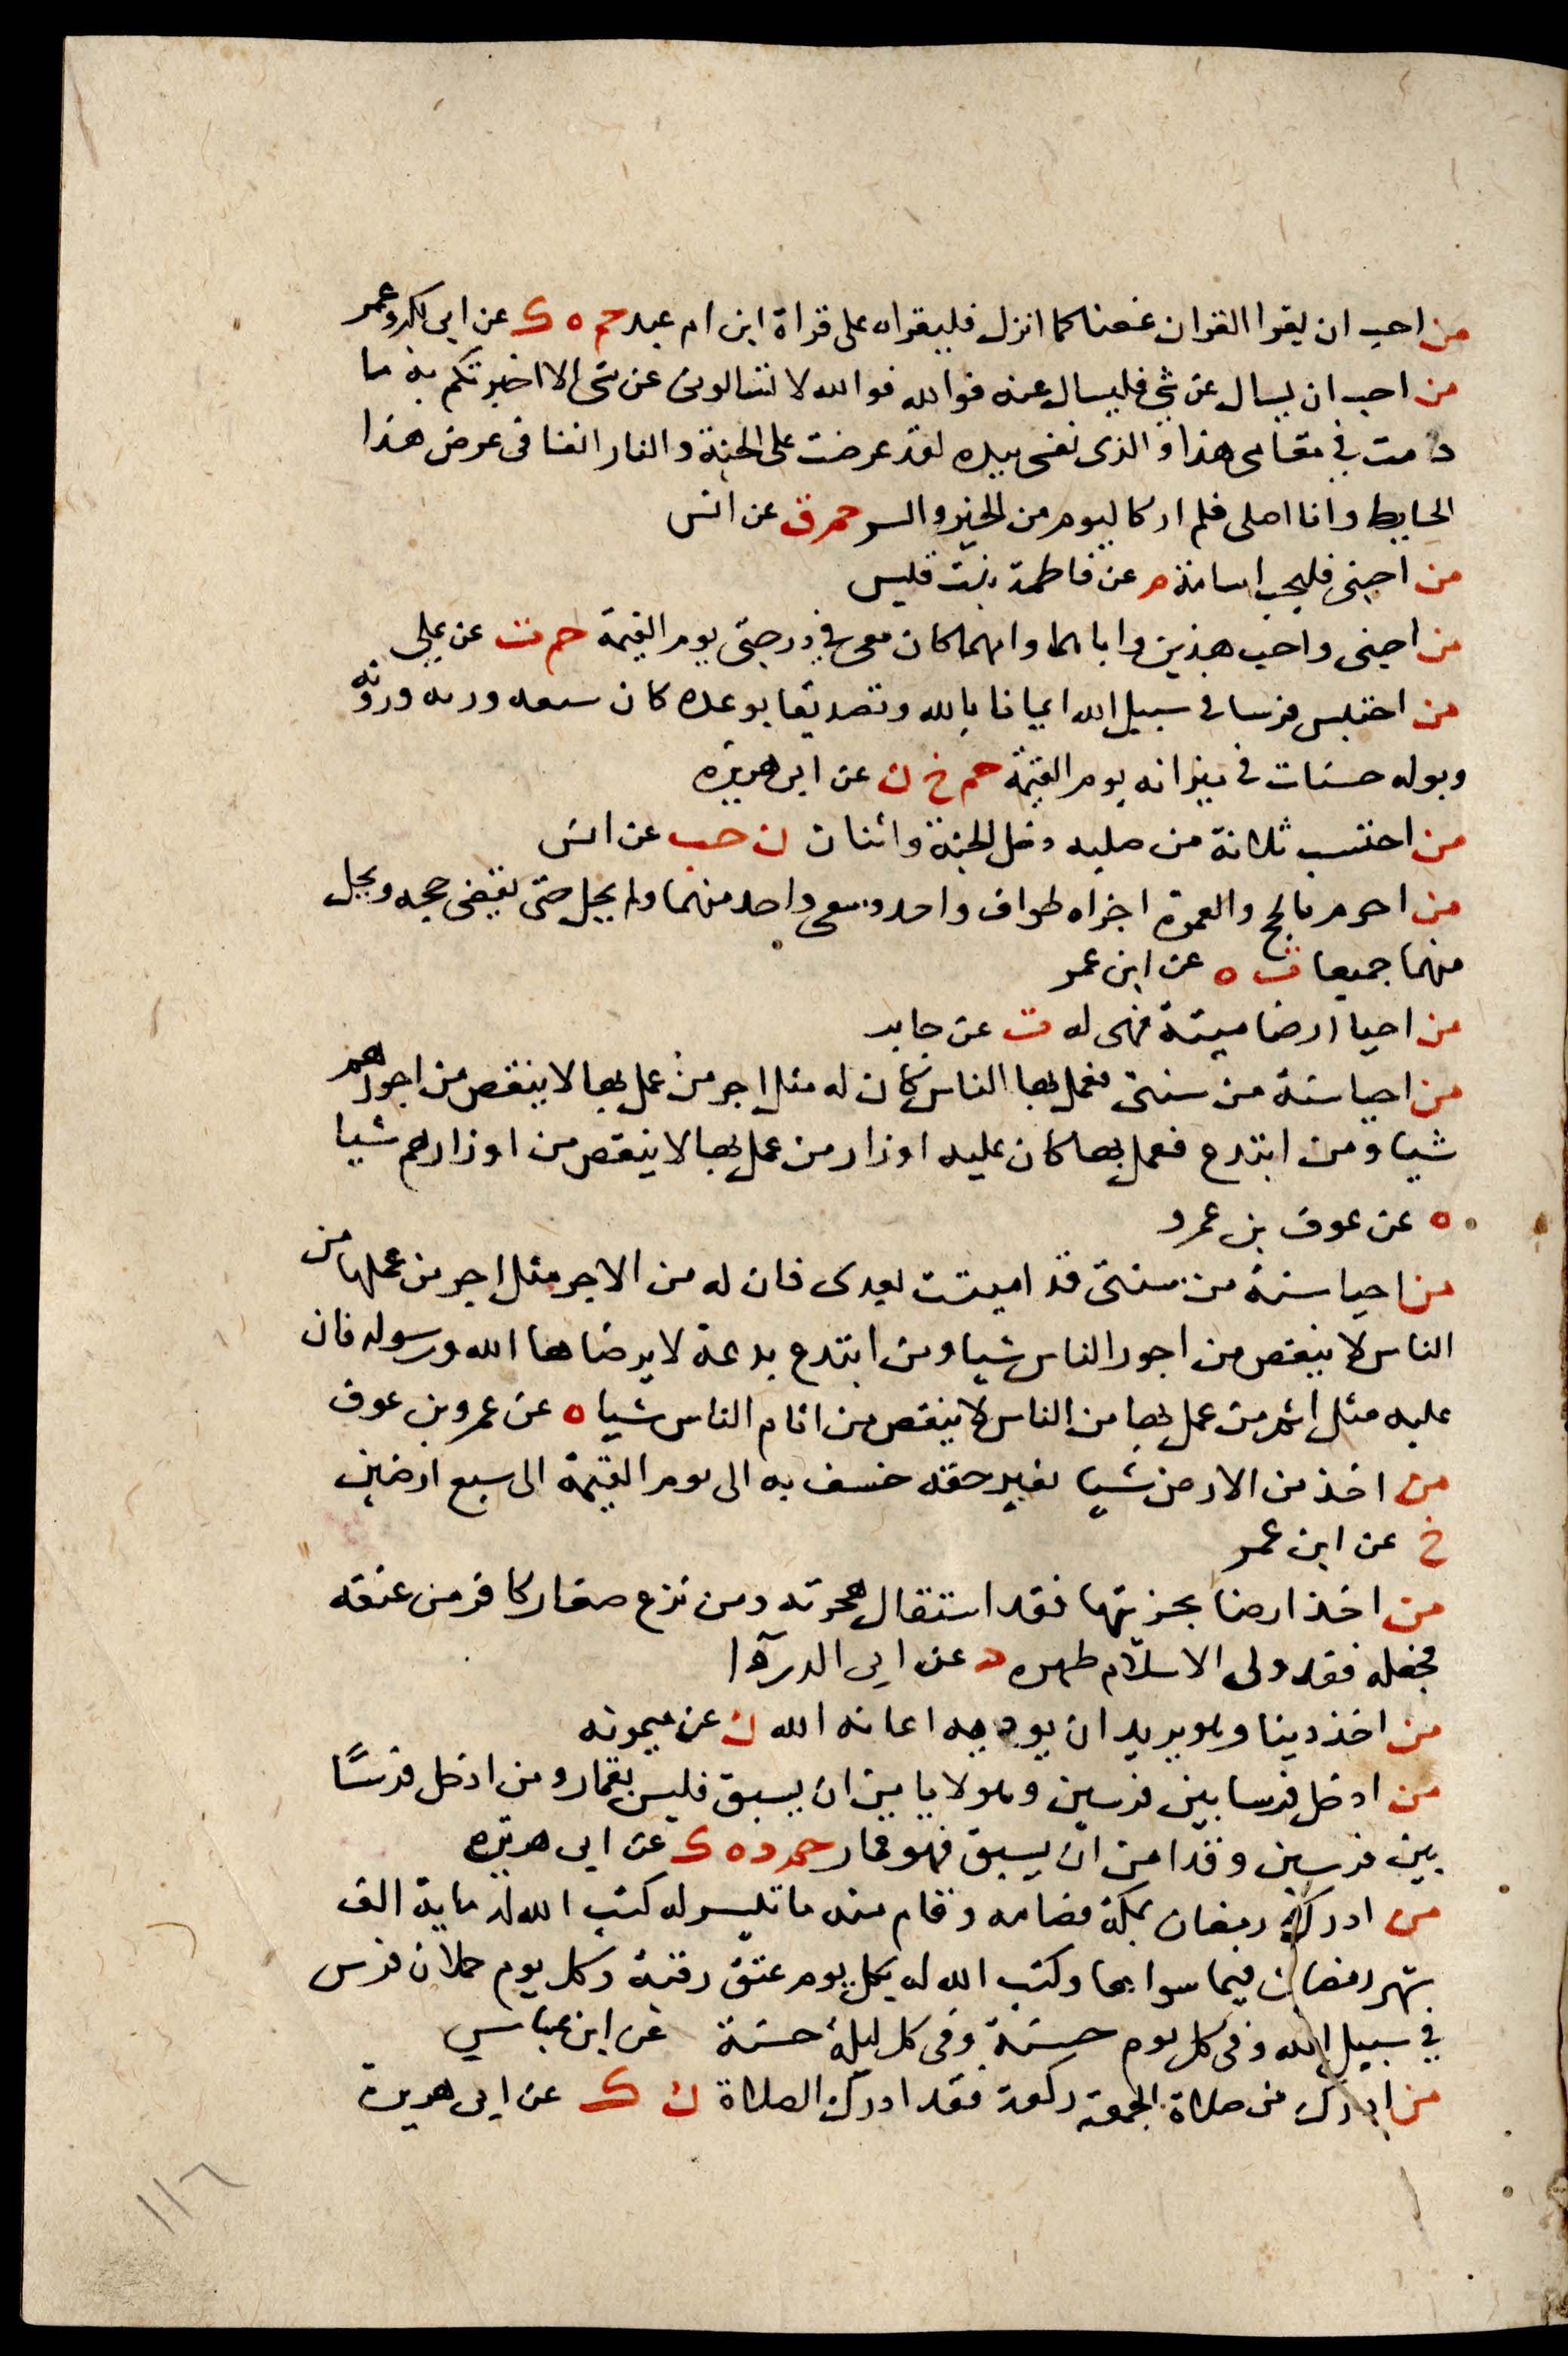 من احب ان يقرا القران غضا كما انزل فليقراه على قراة ابن ام عبد حم ه ك عن ابي بكر وعمر
من احب ان يسال عن شي فليسال عنه فوالله فوالله لا تسالوني عن شي الا اخبرتكم به ما
دامت في مقامي هذا والذي نفسي بيده لقد عرضت على الجنة والنار انفا في عرض هذا
الحايط وانا اصلي فلم ار كاليوم من الخير والسر حم ق عن انس
من احبني فليحب اسامة م عن فاطمة بنت قيس
من احبني واحب هذين واباهما وامهما كان معي في درجتي يوم القيمة حم ت عن علي
من احتبس فرسا في سبيل الله ايمانا بالله وتصديقا بوعده كان سبعه وريه وروثه
وبوله حسنات في ميزانه يوم القيمة حم خ ن عن ابي هريرة
من احتسب ثلاثة من صلبه دخل الجنة واثنان ن حب عن انس
من احرم بالحج والعمرة اجزاه طواف واحد وسعي واحد منهما ولم يحل حتى يقضي حجه ويحل
منهما جميعا ت ه عن ابن عمر
من احيا ارضا ميتة فهي له ت عن جابر
من احيا سنة من سنتي فعمل بها الناس كان له مثل اجر من عمل بها لا ينقص من اجورهم
شيا ومن ابتدع فعمل بها كان عليه اوزار من عمل بها لا ينقص من اوزارهم شيا
ه عن عوف بن عمرو
من احيا سنة من سنتي قد اميتت بعدي فان له من الاجر مثل اجر من عملها من
الناس لا ينقص من اجور الناس شيا ومن ابتدع بدعة لا يرضاها الله ورسوله فان
عليه مثل اثم من عمل بها من الناس لا ينقص من اثام الناس شيا ه عن عمرو بن عوف
من اخذ من الارض شيا بغير حقه خسف به الى يوم القيمة الى سبع ارضين
خ عن ابن عمر
من اخذ ارضا بجزيتها فقد استقال هجرته ومن نزع صغار كافر من عنقه
فجعله فقد ولى الاسلام ظهره د عن ابي الدردآء
من اخذ دينا وهو يريد ان يوديه اعانه الله ن عن ميمونه
من ادخل فرسا بين فرسين وهو لا يامن ان يسبق فليس بقمار ومن ادخل فرسًا
بين فرسين وقد امن ان يسبق فهو قمار حم د ه ك عن ابي هريرة
من ادرك رمضان بمكة فصامه وقام منه ما تيسر له كتب الله له ماية الف
شهر رمضان فيما سواها وكتب الله له بكل يوم عتق رقبة وكل يوم حملان فرس
في سبيل الله وفي كل يوم حسنة وفي كل ليلة حسنة عن ابن عباس
من ادرك من صلاة الجمعة ركعة فقد ادرك الصلاة ن ك عن ابي هريرة
١١٦